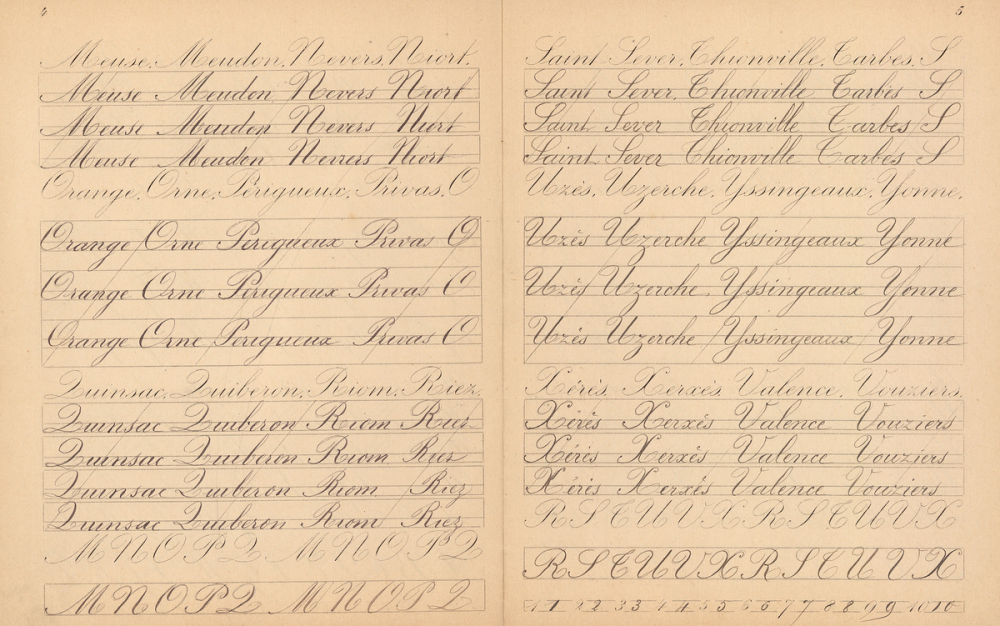 4
Meuse. Meudon. Nevers. Niort.
Meuse Meudon Nevers Niort
Meuse Meudon Nevers Niort
Meuse Meudon Nevers Niort
Orange. Orne. Périgueux. Privas. O
Orange Orne Périgueux Privas O
Orange Orne Périgueux Privas O
Orange Orne Périgueux Privas O
Quinsac. Quiberon. Riom. Riez.
Quinsac Quiberon Riom Riez
Quinsac Quiberon Riom Riez
Quinsac Quiberon Riom Riez
Quinsac Quiberon Riom Riez
M N O P Q M N O P Q
M N O P Q M N O P Q
5
Saint Sever. Thionville. Tarbes. S
Saint Sever. Thionville Tarbes S
Saint Sever Thionville Tarbes S
Saint Sever Thionville Tarbes S
Uzès. Uzerche. Yssingeaux. Yonne.
Uzès Uzerche Yssingeaux Yonne
Uzès Uzerche Yssingeaux Yonne
Uzès Uzerche Yssingeaux Yonne
Xérès. Xerxès Valence. Vouziers.
Xérès Xerxès Valence Vouziers
Xérès Xerxès Valence Vouziers
Xérès Xerxès Valence Vouziers
R S T U V X R S T U V X
R S T U V X R S T U V X
1 1 2 2 3 3 4 4 5 5 6 6 7 7 8 8 9 9 10 10